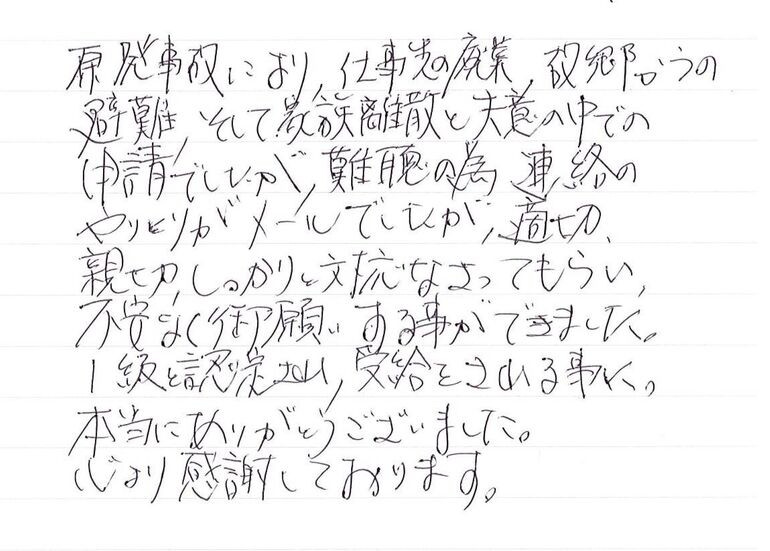 原発事故により、仕事先の廃業、故郷からの
避難、そして家族離散と失意の中での
申請でしたが、難聴の為、連絡の
やりとりがメールでしたが、適切、
親切、しっかりと対応なさってもらい、
不安なく御願いする事ができました。
1級と認定され、受給をされる事に。
本当にありがとうございました。
心より感謝しております。